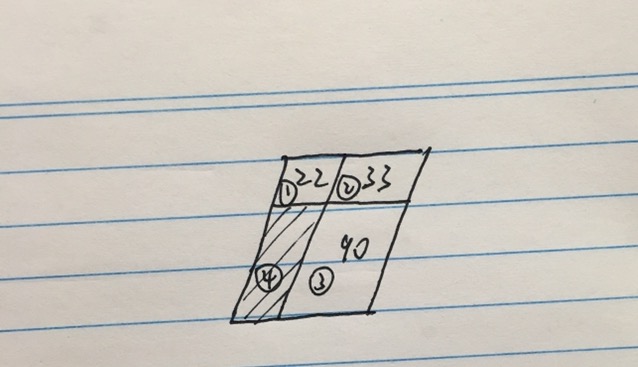 ①22 ②33
90
④ ③